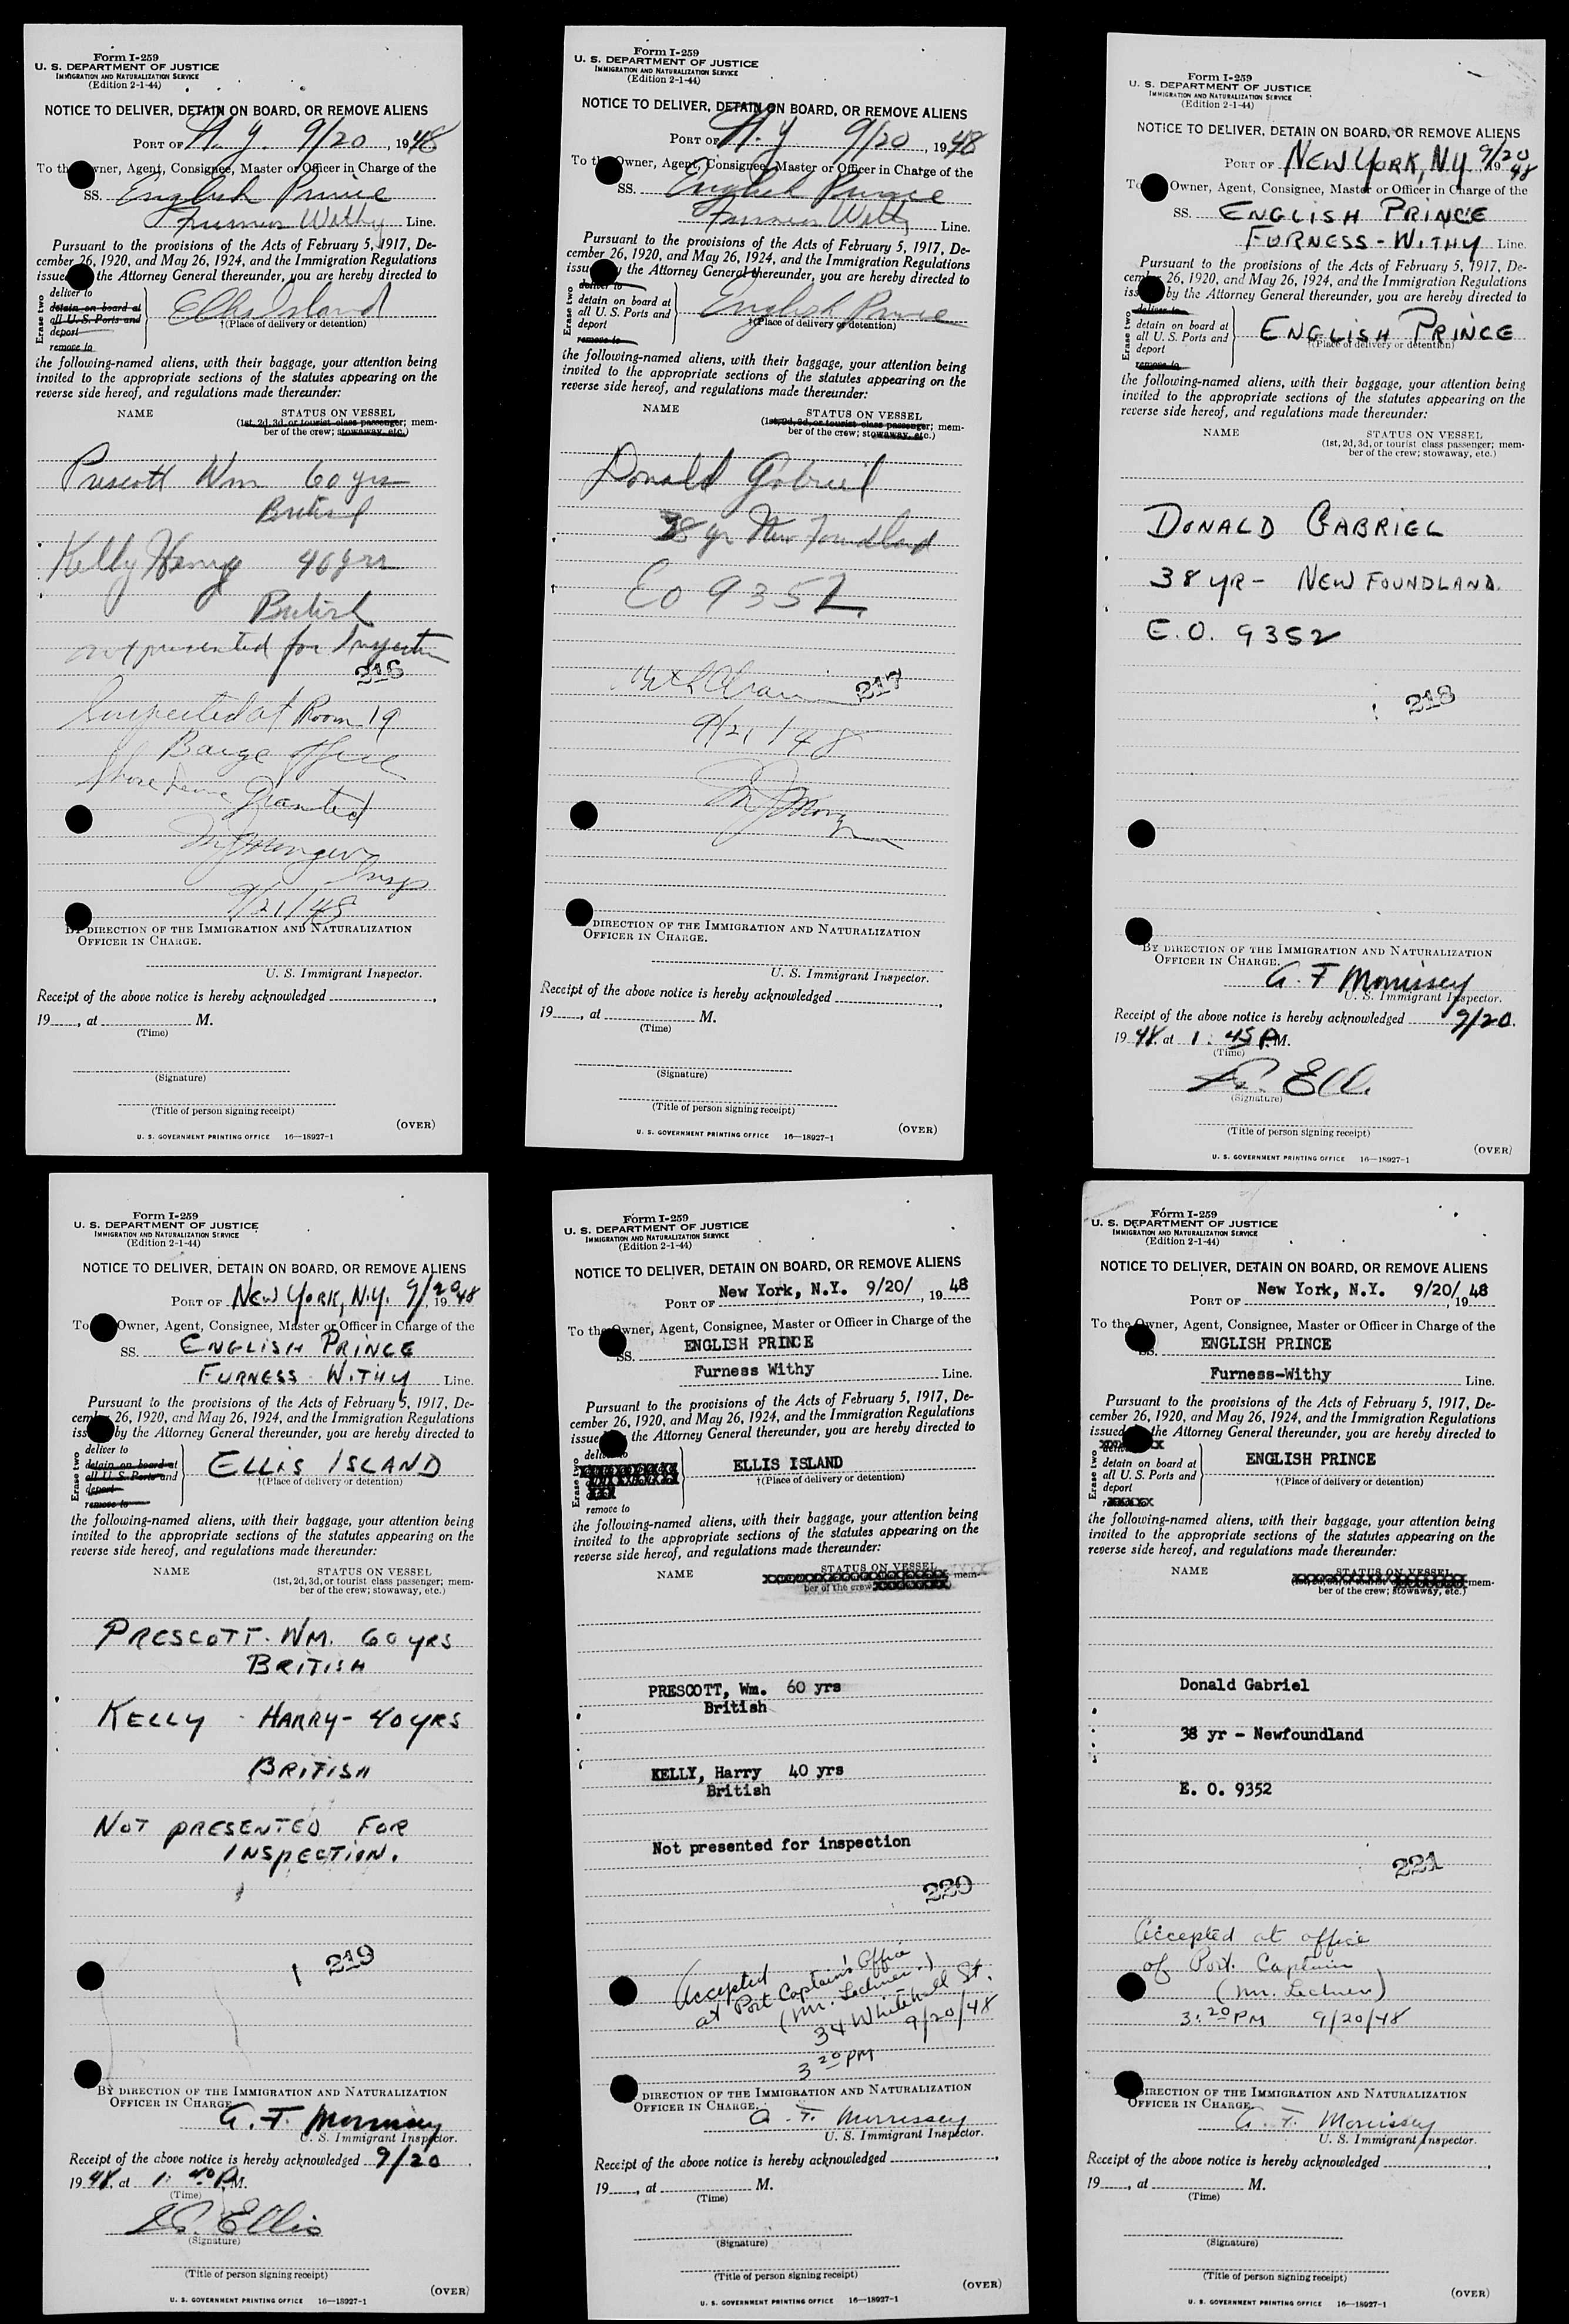 Form I-259
U. S. DEPARTMENT OF JUSTICE
IMMIGRATION AND NATURALIZATION SERVICE
(Edition 2-1-44)
NOTICE TO DELIVER, DETAIN ON BOARD, OR REMOVE ALIENS
PORT OF N. Y. 9/20, 1948
To the Owner, Agent, Consignee, Master or Officer in Charge of the
SS. English Prince
Furness Withy Line.
Pursuant to the provisions of the Acts of February 5, 1917, De-
cember 26, 1920, and May 26, 1924, and the Immigration Regulations
issued the Attorney General thereunder, you are hereby directed to
Erase two
deliver to
detain on board at
all U. S. Ports and
deport
remove to
Ellis Island
†(Place of delivery or detention)
the following-named aliens, with their baggage, your attention being
invited to the appropriate sections of the statutes appearing on the
reverse side hereof, and regulations made thereunder:
NAME STATUS ON VESSEL
(1st, 2d, 3d, or tourist class passenger; mem-
ber of the crew; stowaway, etc.)
Prescott Wm 60 yrs
British
Kelly Henry 40 yrs
British
not presented for Inspection
216
Inspected at Room 19
Barge office
Shore leave Granted
Insp
9/21/48
BY DIRECTION OF THE IMMIGRATION AND NATURALIZATION
OFFICER IN CHARGE.
U. S. Immigrant Inspector.
Receipt of the above notice is hereby acknowledged
19, at M.
(Time)
(Signature)
(Title of person signing receipt)
(OVER)
U. S. GOVERNMENT PRINTING OFFICE 16—18927-1
Form I-259
U. S. DEPARTMENT OF JUSTICE
IMMIGRATION AND NATURALIZATION SERVICE
(Edition 2-1-44)
NOTICE TO DELIVER, DETAIN ON BOARD, OR REMOVE ALIENS
PORT OF N. Y 9/20, 1948
To the Owner, Agent, Consignee, Master or Officer in Charge of the
SS. English Prince
Furness Withy Line.
Pursuant to the provisions of the Acts of February 5, 1917, De-
cember 26, 1920, and May 26, 1924, and the Immigration Regulations
issued by the Attorney General thereunder, you are hereby directed to
Erase two
deliver to
detain on board at
all U. S. Ports and
deport
remove to
English Prince
†(Place of delivery or detention)
the following-named aliens, with their baggage, your attention being
invited to the appropriate sections of the statutes appearing on the
reverse side hereof, and regulations made thereunder:
NAME STATUS ON VESSEL
(1st, 2d, 3d, or tourist class passenger; mem-
ber of the crew; stowaway, etc.)
Donald Gabriel
38 yr New Foundland
EO 9352
217
9/21/48
DIRECTION OF THE IMMIGRATION AND NATURALIZATION
OFFICER IN CHARGE.
U. S. Immigrant Inspector.
Receipt of the above notice is hereby acknowledged
19, at M.
(Time)
(Signature)
(Title of person signing receipt)
(OVER)
U. S. GOVERNMENT PRINTING OFFICE 16—18927-1
Form I-259
U. S. DEPARTMENT OF JUSTICE
IMMIGRATION AND NATURALIZATION SERVICE
(Edition 2-1-44)
NOTICE TO DELIVER, DETAIN ON BOARD, OR REMOVE ALIENS
PORT OF NEW YORK, N.Y. 9/20 1948
To Owner, Agent, Consignee, Master or Officer in Charge of the
SS. ENGLISH PRINCE
FURNESS-WITHY Line.
Pursuant to the provisions of the Acts of February 5, 1917, De-
cember 26, 1920, and May 26, 1924, and the Immigration Regulations
issued by the Attorney General thereunder, you are hereby directed to
Erase two
deliver to
detain on board at
all U. S. Ports and
deport
remove to
ENGLISH PRINCE
†(Place of delivery or detention)
the following-named aliens, with their baggage, your attention being
invited to the appropriate sections of the statutes appearing on the
reverse side hereof, and regulations made thereunder:
NAME STATUS ON VESSEL
(1st, 2d, 3d, or tourist class passenger; mem-
ber of the crew; stowaway, etc.)
DONALD GABRIEL
38 YR - NEW FOUNDLAND.
E.O. 9352
218
BY DIRECTION OF THE IMMIGRATION AND NATURALIZATION
OFFICER IN CHARGE.
A. F Morrissey
U. S. Immigrant Inspector.
Receipt of the above notice is hereby acknowledged 9/20.
1948, at 1:45 P.M.
(Time)
(Signature)
(Title of person signing receipt)
(OVER)
U. S. GOVERNMENT PRINTING OFFICE 16—18927-1
Form I-259
U. S. DEPARTMENT OF JUSTICE
IMMIGRATION AND NATURALIZATION SERVICE
(Edition 2-1-44)
NOTICE TO DELIVER, DETAIN ON BOARD, OR REMOVE ALIENS
PORT OF NEW YORK, N.Y. 9/20, 1948
To Owner, Agent, Consignee, Master or Officer in Charge of the
SS. ENGLISH PRINCE
FURNESS WITHY Line.
Pursuant to the provisions of the Acts of February 5, 1917, De-
cember 26, 1920, and May 26, 1924, and the Immigration Regulations
issued by the Attorney General thereunder, you are hereby directed to
Erase two
deliver to
detain on board at
all U. S. Ports and
deport
remove to
ELLIS ISLAND
†(Place of delivery or detention)
the following-named aliens, with their baggage, your attention being
invited to the appropriate sections of the statutes appearing on the
reverse side hereof, and regulations made thereunder:
NAME STATUS ON VESSEL
(1st, 2d, 3d, or tourist class passenger; mem-
ber of the crew; stowaway, etc.)
PRESCOTT. WM. 60 YRS
BRITISH
KELLY - HARRY- 40 YRS
BRITISH
NOT PRESENTED FOR
INSPECTION.
219
BY DIRECTION OF THE IMMIGRATION AND NATURALIZATION
OFFICER IN CHARGE.
A. F. Morrissey
U. S. Immigrant Inspector.
Receipt of the above notice is hereby acknowledged 9/20
1948, at 1:40 P.M.
(Time)
Ellis
(Signature)
(Title of person signing receipt)
(OVER)
U. S. GOVERNMENT PRINTING OFFICE 16—18927-1
Form I-259
U. S. DEPARTMENT OF JUSTICE
IMMIGRATION AND NATURALIZATION SERVICE
(Edition 2-1-44)
NOTICE TO DELIVER, DETAIN ON BOARD, OR REMOVE ALIENS
PORT OF New York, N.Y. 9/20/, 1948
To the Owner, Agent, Consignee, Master or Officer in Charge of the
SS. ENGLISH PRINCE
Furness Withy Line.
Pursuant to the provisions of the Acts of February 5, 1917, De-
cember 26, 1920, and May 26, 1924, and the Immigration Regulations
issued the Attorney General thereunder, you are hereby directed to
Erase two
deliver to
remove to
ELLIS ISLAND
†(Place of delivery or detention)
the following-named aliens, with their baggage, your attention being
invited to the appropriate sections of the statutes appearing on the
reverse side hereof, and regulations made thereunder:
NAME STATUS ON VESSEL
mem-
ber of the crew
PRESCOTT, Wm. 60 yrs
British
KELLY, Harry 40 yrs
British
Not presented for inspection
220
(Accepted
at Port Captain's Office
(Mr. Lechner)
34 Whitehall St.
9/20/48
3 20 PM
DIRECTION OF THE IMMIGRATION AND NATURALIZATION
OFFICER IN CHARGE.
A. F. Morrissey
U. S. Immigrant Inspector.
Receipt of the above notice is hereby acknowledged
19, at M.
(Time)
(Signature)
(Title of person signing receipt)
(OVER)
U. S. GOVERNMENT PRINTING OFFICE 16—18927-1
Form I-259
U. S. DEPARTMENT OF JUSTICE
IMMIGRATION AND NATURALIZATION SERVICE
(Edition 2-1-44)
NOTICE TO DELIVER, DETAIN ON BOARD, OR REMOVE ALIENS
PORT OF New York, N.Y. 9/20/, 1948
To the Owner, Agent, Consignee, Master or Officer in Charge of the
SS. ENGLISH PRINCE
Furness-Withy Line.
Pursuant to the provisions of the Acts of February 5, 1917, De-
cember 26, 1920, and May 26, 1924, and the Immigration Regulations
issued the Attorney General thereunder, you are hereby directed to
Erase two
detain on board at
all U. S. Ports and
deport
ENGLISH PRINCE
†(Place of delivery or detention)
the following-named aliens, with their baggage, your attention being
invited to the appropriate sections of the statutes appearing on the
reverse side hereof, and regulations made thereunder:
NAME STATUS ON VESSEL
mem-
ber of the crew; stowaway, etc.)
Donald Gabriel
38 yr - Newfoundland
E. O. 9352
221
Accepted at office
of Port. Captain
(Mr. Lechner)
3:20 PM 9/20/48
DIRECTION OF THE IMMIGRATION AND NATURALIZATION
OFFICER IN CHARGE.
A. F. Morrissey
U. S. Immigrant Inspector.
Receipt of the above notice is hereby acknowledged
19, at M.
(Time)
(Signature)
(Title of person signing receipt)
(OVER)
U. S. GOVERNMENT PRINTING OFFICE 16—18927-1